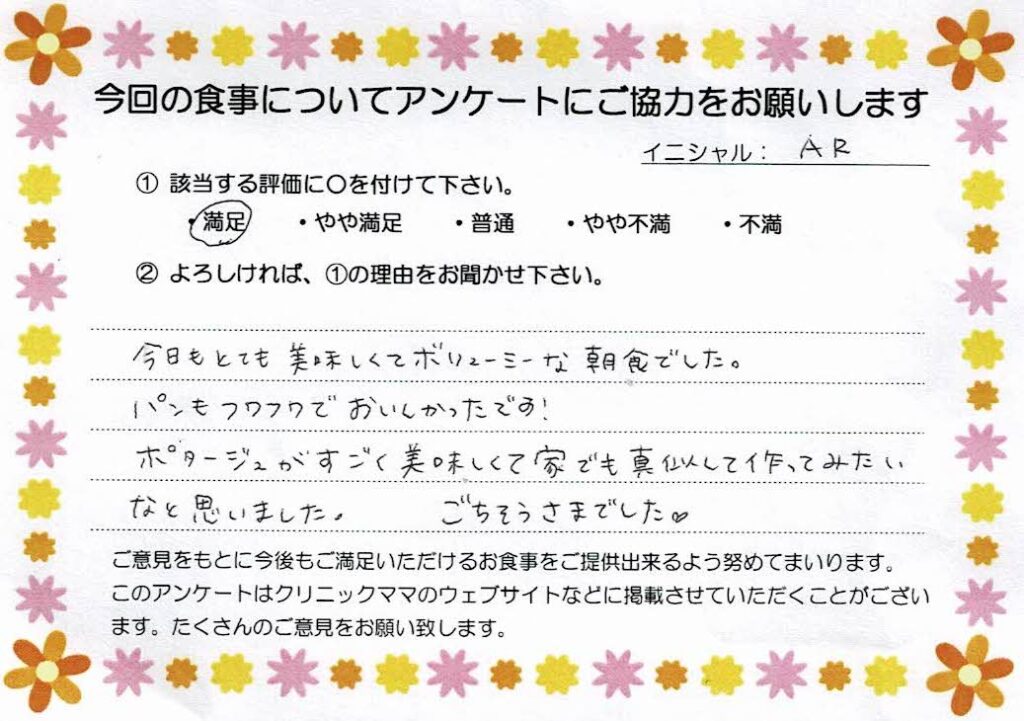 今回の食事についてアンケートにご協力をお願いします
イニシャル： AR
① 該当する評価に〇を付けて下さい。
・満足 ・やや満足 ・普通 ・やや不満 ・不満
② よろしければ、①の理由をお聞かせ下さい。
今日もとても美味しくてボリューミーな朝食でした。
パンもフワフワでおいしかったです!
ポタージュがすごく美味しくて家でも真似して作ってみたい
なと思いました。 ごちそうさまでした♡
ご意見をもとに今後もご満足いただけるお食事をご提供出来るよう努めてまいります。
このアンケートはクリニックママのウェブサイトなどに掲載させていただくことがござい
ます。たくさんのご意見をお願い致します。